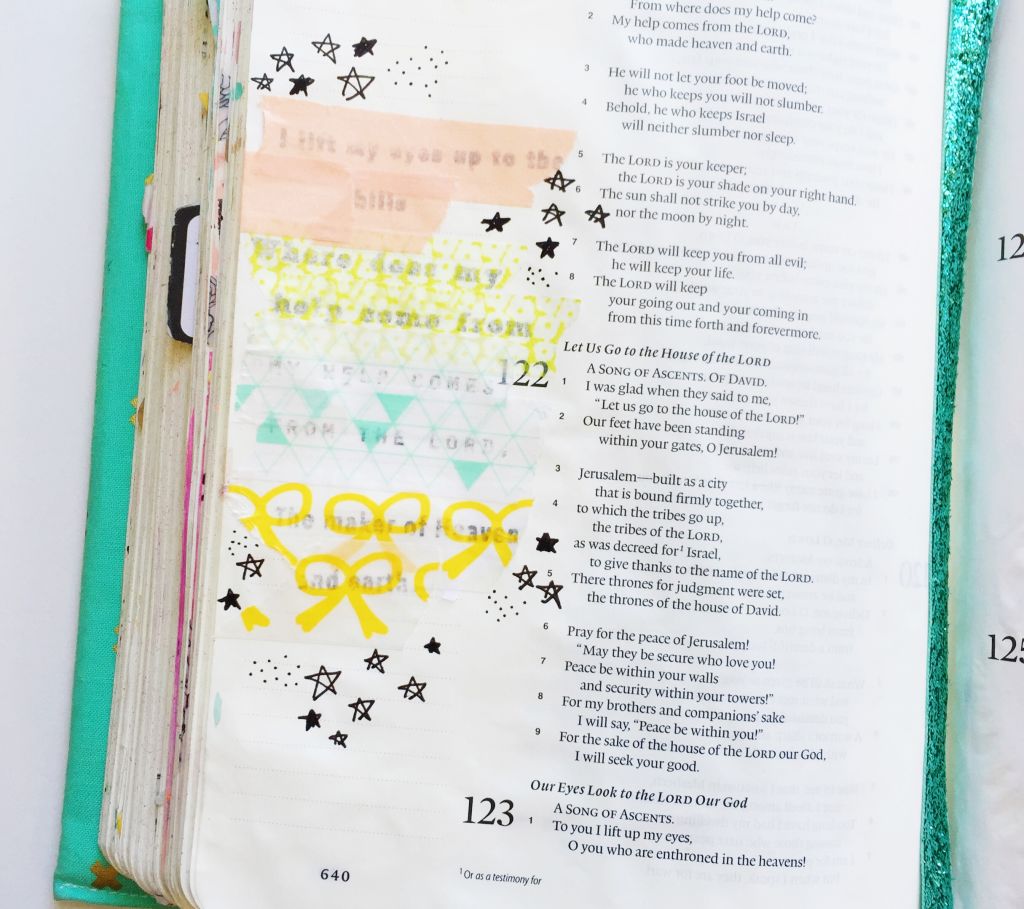 I lift my eyes up to the
hills
Where does my
help come from
MY HELP COMES
FROM THE LORD,
The maker of Heaven
and earth
640
From where does my help come?
2 My help comes from the LORD,
who made heaven and earth.
3 He will not let your foot be moved;
he who keeps you will not slumber.
4 Behold, he who keeps Israel
will neither slumber nor sleep.
5 The LORD is your keeper;
the LORD is your shade on your right hand.
6 The sun shall not strike you by day,
nor the moon by night.
7 The LORD will keep you from all evil;
he will keep your life.
8 The LORD will keep
your going out and your coming in
from this time forth and forevermore.
Let Us Go to the House of the LORD
122
A SONG OF ASCENTS. OF DAVID.
1 I was glad when they said to me,
“Let us go to the house of the LORD!”
2 Our feet have been standing
within your gates, O Jerusalem!
3 Jerusalem—built as a city
that is bound firmly together,
4 to which the tribes go up,
the tribes of the LORD,
as was decreed for¹ Israel,
to give thanks to the name of the LORD.
5 There thrones for judgment were set,
the thrones of the house of David.
6 Pray for the peace of Jerusalem!
“May they be secure who love you!
7 Peace be within your walls
and security within your towers!”
8 For my brothers and companions’ sake
I will say, “Peace be within you!”
9 For the sake of the house of the LORD our God,
I will seek your good.
Our Eyes Look to the LORD Our God
123
A SONG OF ASCENTS.
1 To you I lift up my eyes,
O you who are enthroned in the heavens!
¹ Or as a testimony for
125